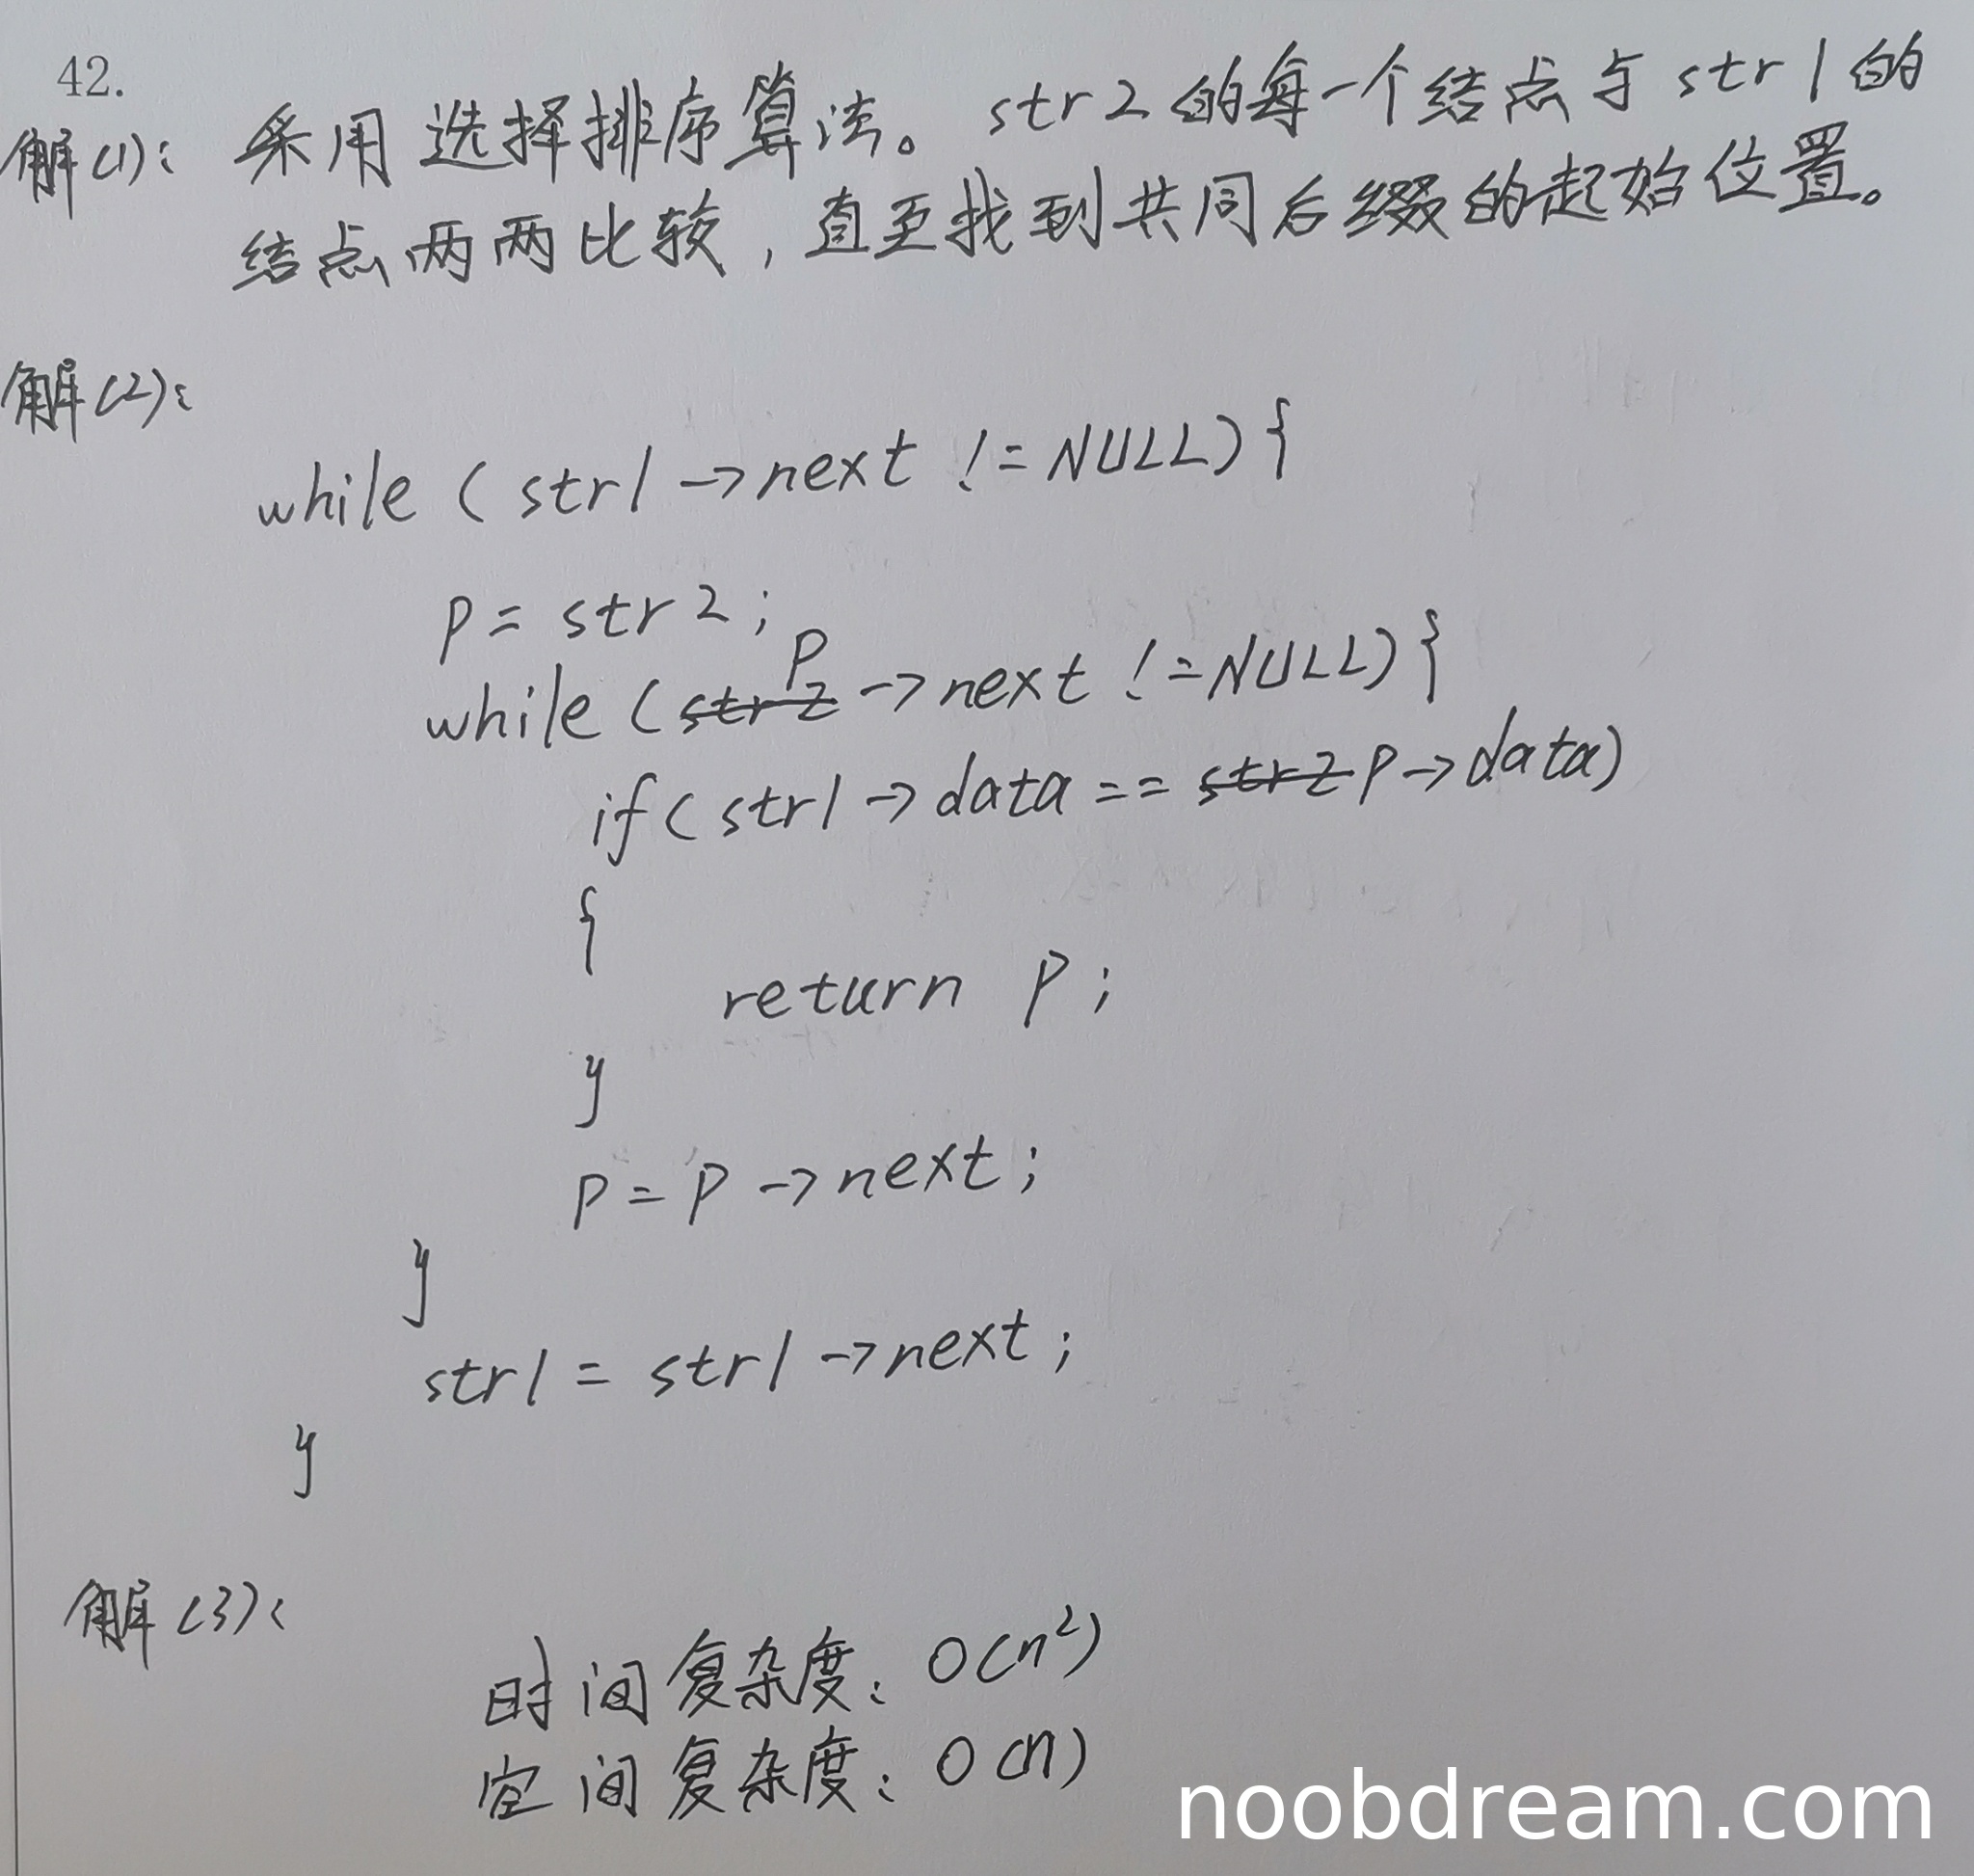 42.
解(1): 采用选择排序算法。str2的每一个结点与str1的
结点两两比较,直至找到共同后缀的起始位置。
解(2):
while (str1->next != NULL){
p = str2;
p
while (str2->next != NULL){
if(str1->data == str2 p->data)
{
return p;
}
p = p->next;
}
str1 = str1->next;
}
解(3):
时间复杂度: O(n²)
空间复杂度: O(n)
noobdream.com